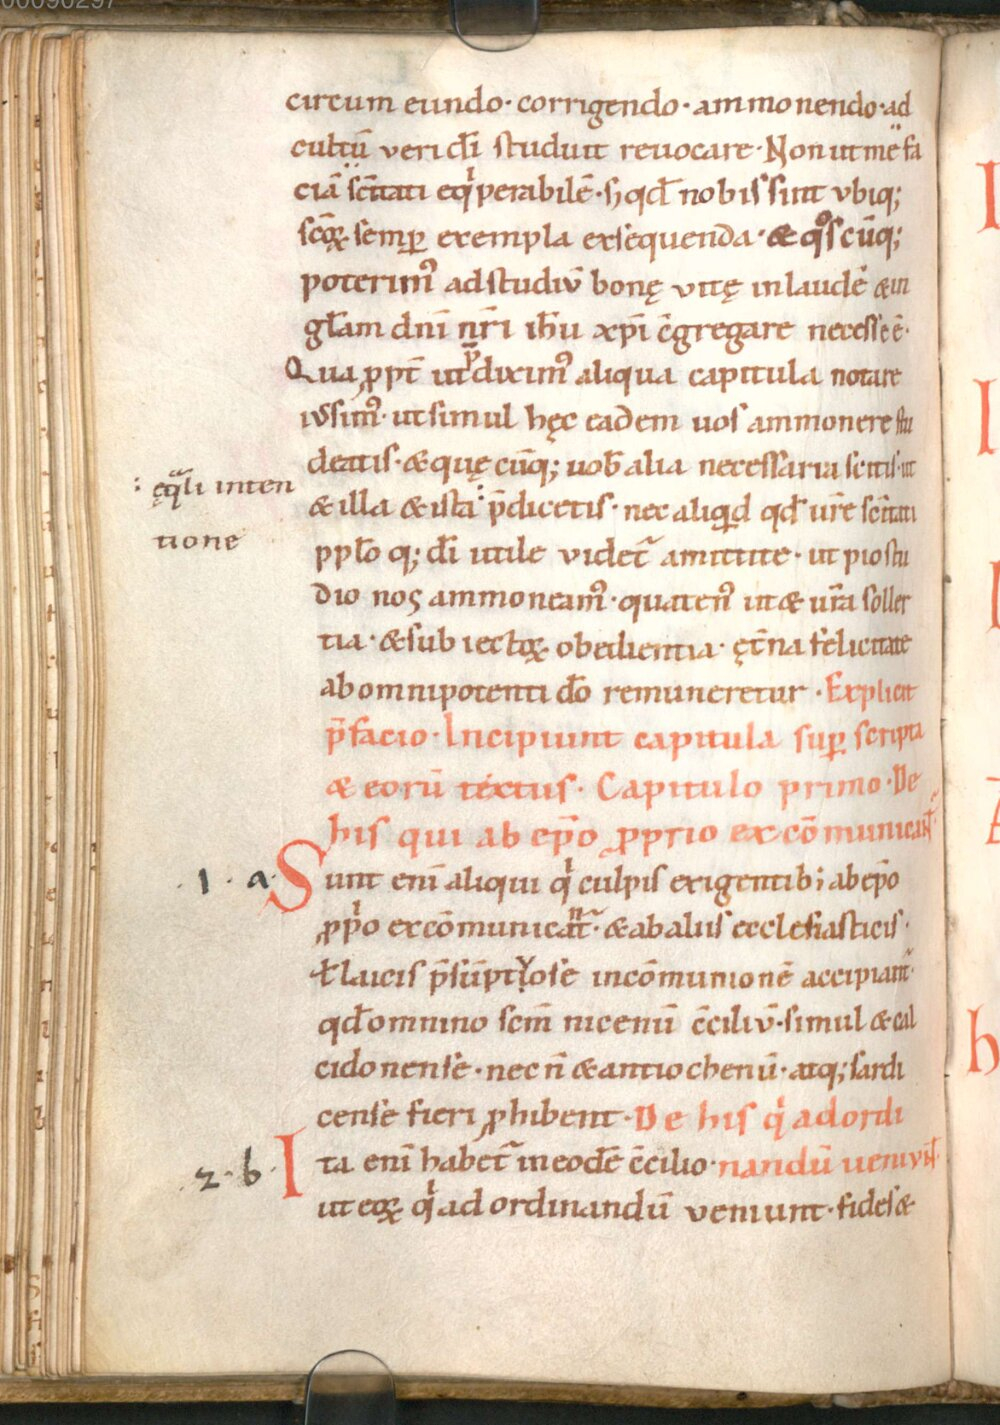 circum eundo· corrigendo· ammonendo· ad
cultū veri dī studuit reuocare· Non ut mē fa
ciā sc̄itati eqͥperabilē· sꝫ qđ nobis sint vbiqꝫ
scōꝝ semꝑ exempla exsequenda· & qͦscūqꝫ
poterimꝰ ad studiū bonę vitę in laudē & in
gɫam dn̄i nr̄i ih̄u xp̄i c̄gregare necesse ē·
Qua ꝓpt̄ ut p̄diximꝰ aliqua capitula notare
iv̄simꝰ· ut simul hęc eadem uos ammonere stu
deatis· & quęcūqꝫ uob̄ alia necessaria scitis· ut
& illa & ista p̄dicetis· nec aliquid qđ ur̄e sc̄itati
pplo qꝫ dī utile videt᷑ amittite· ut pio stu
dio nos ammoneamꝰ· quatenꝰ ut & ur̄a soller
tia· & subiectoꝝ obedientia· ęt̄na felicitate
ab omnipotenti dō remuneretur· Explicit
p̄facio· Incipiunt capitula suꝑ scripta
& eorū textus· Capitulo primo· De
his qui ab ep̄o ꝓprio excōmunicant᷑
·1· a Sunt enī aliqui qͥ culpis exigentibꝫ ab ep̄o
ꝓpͥo excōmunicant᷑· & ab aliis ecclesiasticis·
ɫ laicis p̄sūptyose in cōmunionē accipiant᷑·
qđ omnino scm̄ nicenū c̄ciliū· simul & cal
cidonense· nec n̄ & antiochenū· atqꝫ sardi
cense fieri ꝓhibent· De his qͥ ad ordi
·2· b· Ita enī habet᷑ in eodē c̄cilio· nandū veniunt·
ut eoꝝ qͥ ad ordinandū veniunt· fides &
ęq̄li inten
tione